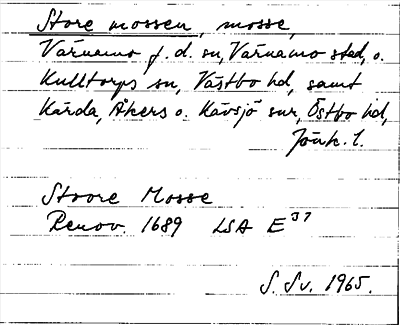 Store mossen, mosse,
Värnamo f.d. sn, Värnamo stad, o.
Kulltorps sn, Västbo hd, samt
Kärda, Åkers o. Kävsjö snr, Östbo hd,
Jönk. l.
Stoore Mosse
Renov. 1689 LSA E 37
S. Sv. 1965.